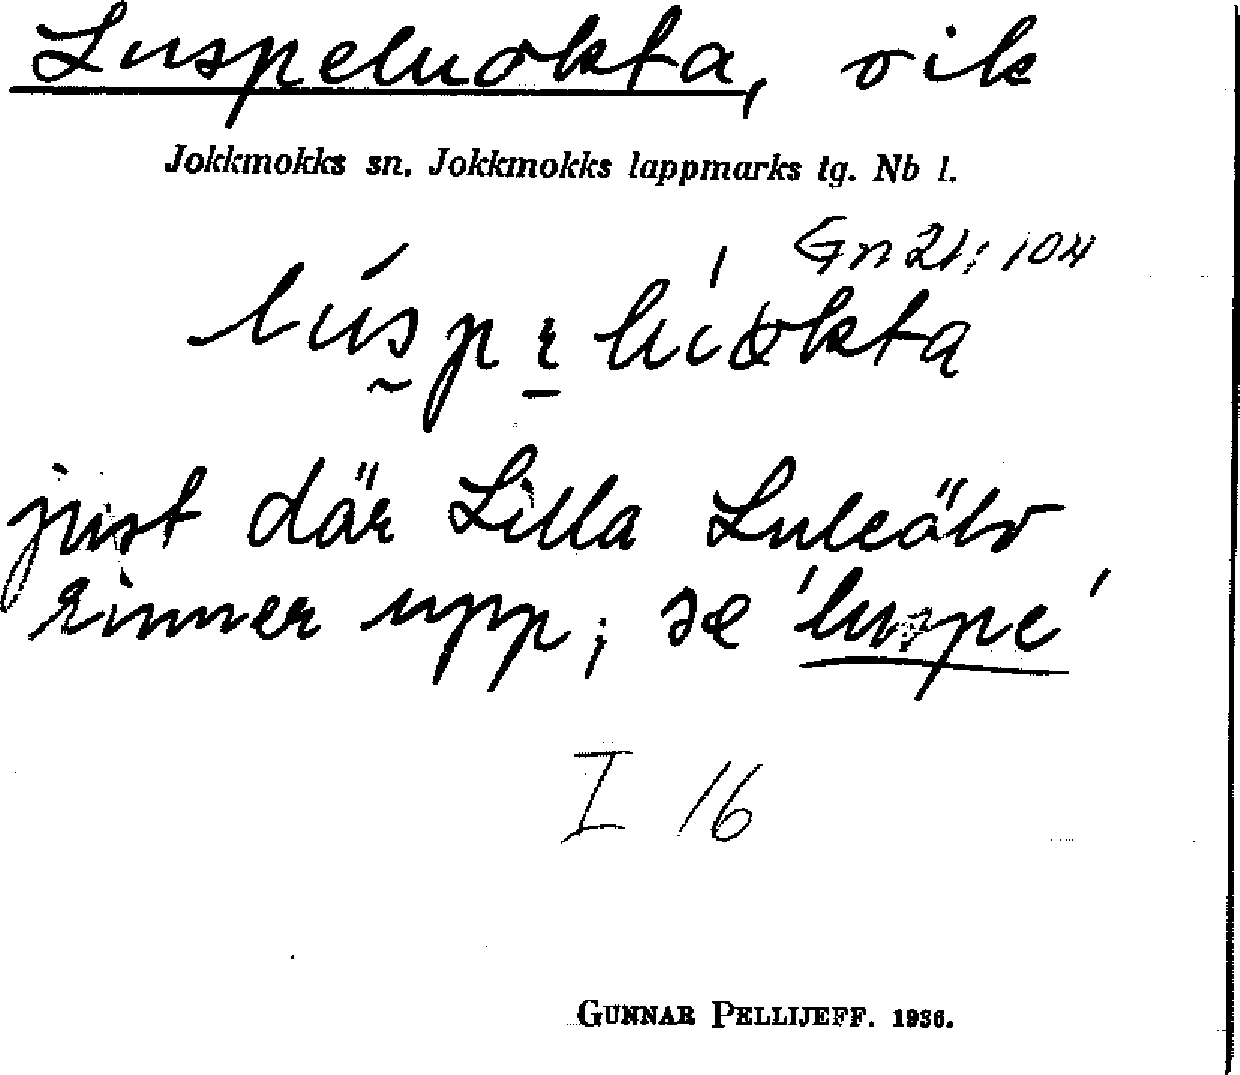 Luspeluokta, vik
Jokkmokks sn. Jokkmokks lappmarks tg. Nb l.
Gn 21; 104
just där Lilla Luleälv
rinner upp; se 'luspe'
I 16
GUNNAR PELLIJEFF. 1936.